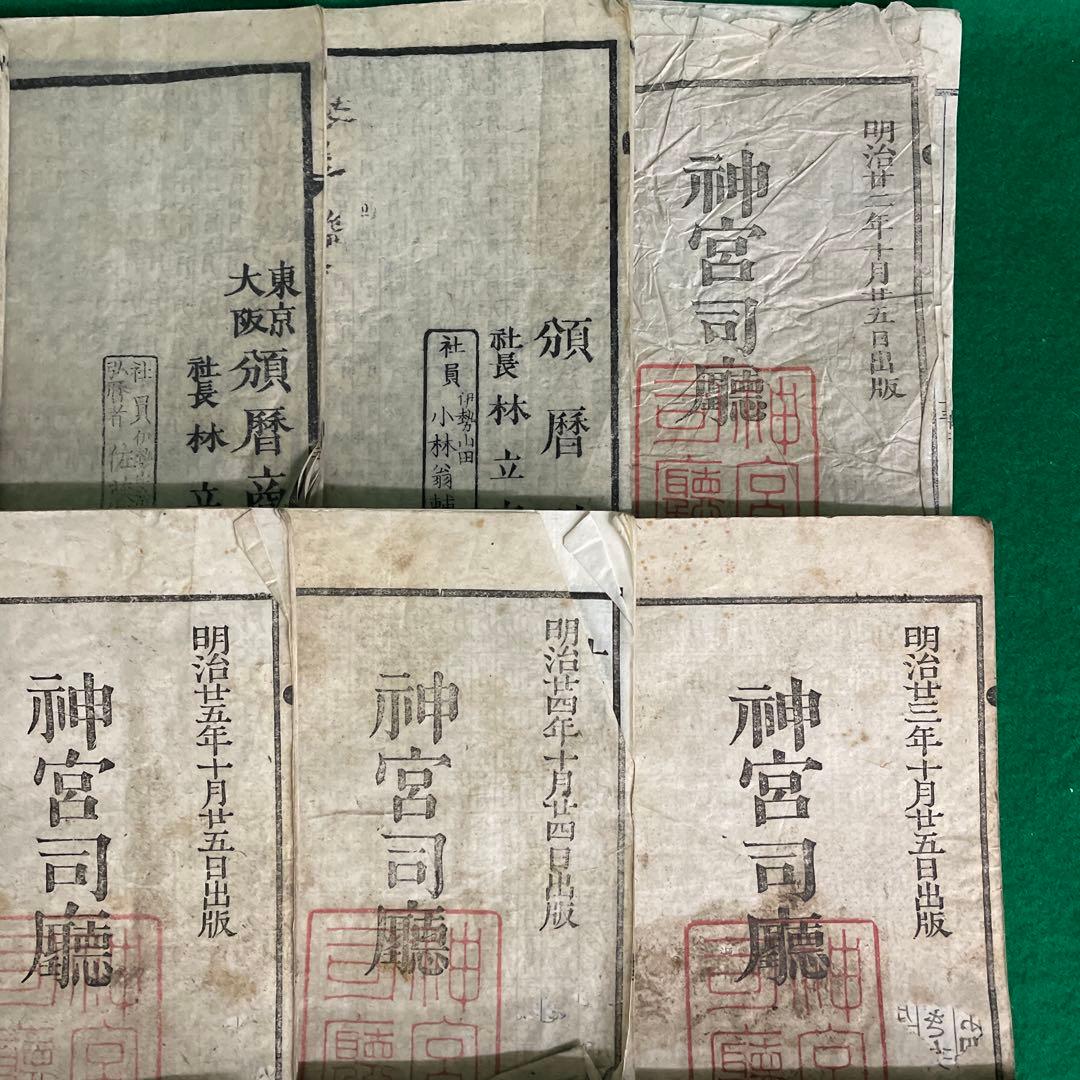 明治廿二年十月廿五日出版
神宮司廳
神宮司廳
頒暦
社長 林 立
社員 伊勢山田 小林翁輔
東京
大阪
頒暦商
社長 林 立
社員
弘暦者 佐
明治廿三年十月廿五日出版
神宮司廳
神宮司廳
明治廿四年十月廿四日出版
神宮司廳
神宮司廳
明治廿五年十月廿五日出版
神宮司廳
神宮司廳